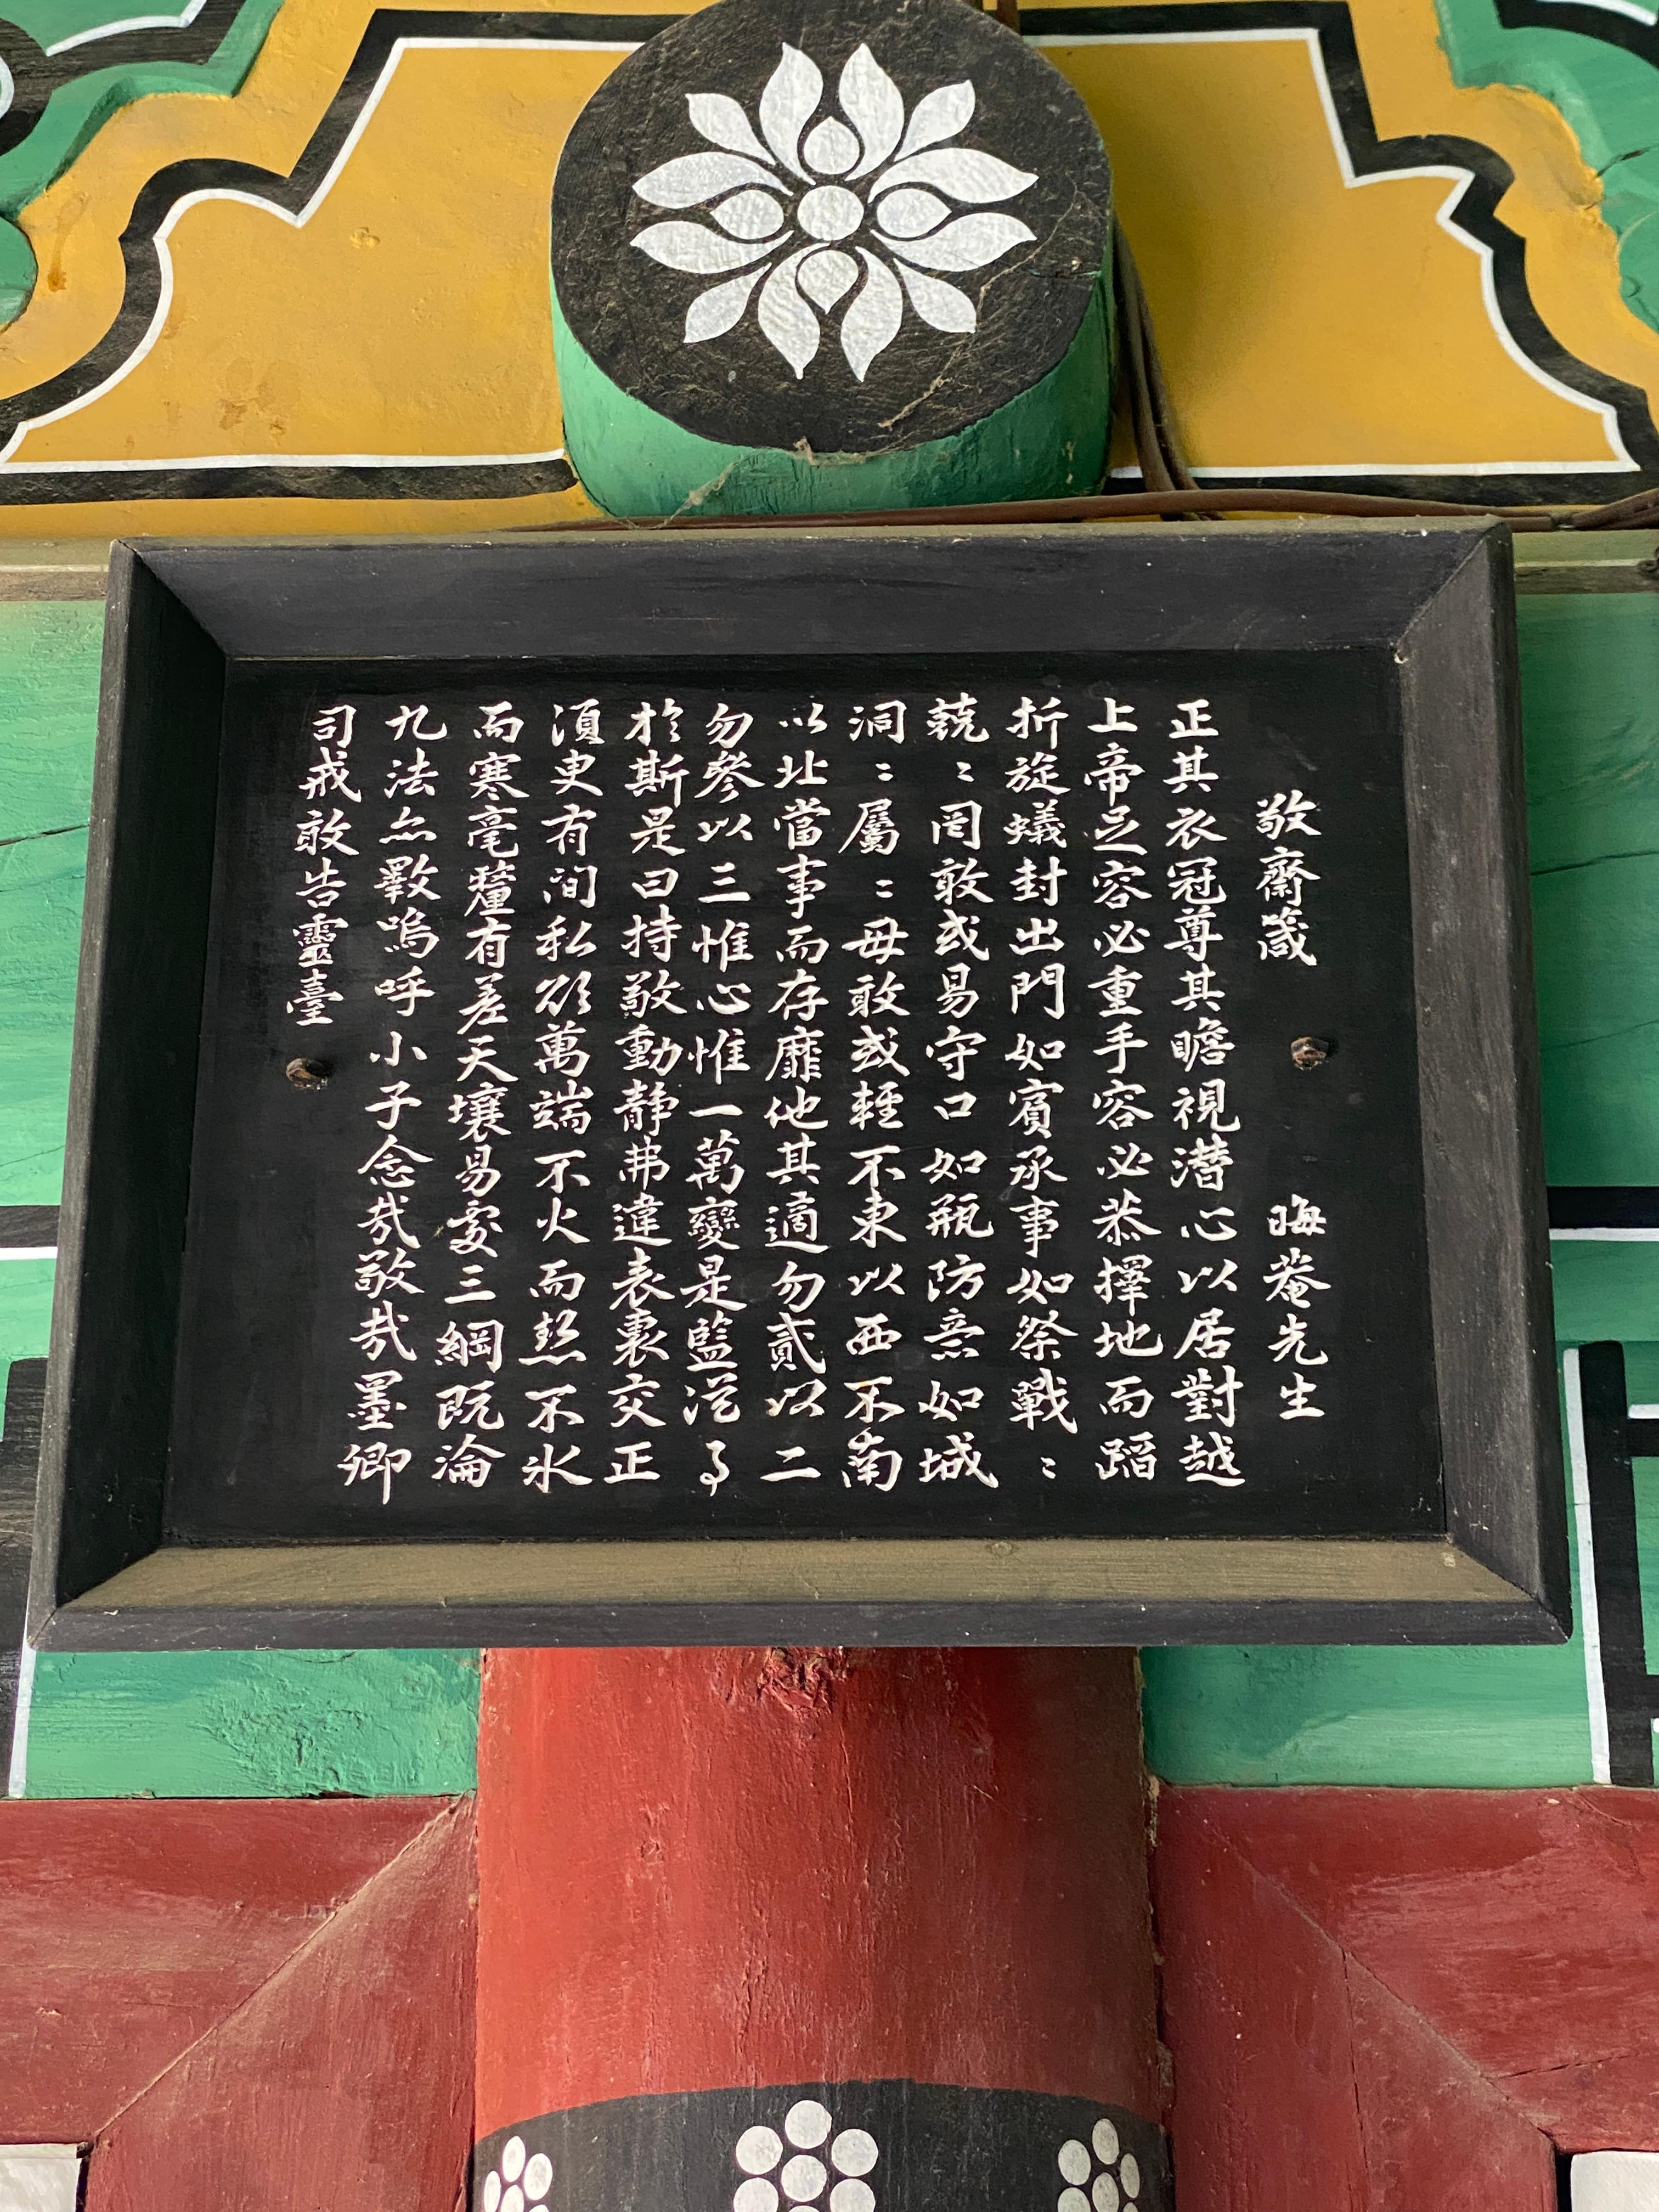 敬齋箴 晦菴先生
正其衣冠尊其瞻視潜心以居對越
上帝足容必重手容必恭擇地而蹈
折旋蟻封出門如賓承事如祭戰〻
兢〻罔敢或易守口如甁防意如城
洞〻屬〻毋敢或輕不東以西不南
以北當事而存靡他其適勿貳以二
勿參以三惟心惟一萬變是監從事
於斯是曰持敬動靜弗違表裏交正
須臾有間私欲萬端不火而熱不氷
而寒毫釐有差天壤易處三綱旣淪
九法亦斁嗚呼小子念哉敬哉墨卿
司戒敢告靈臺